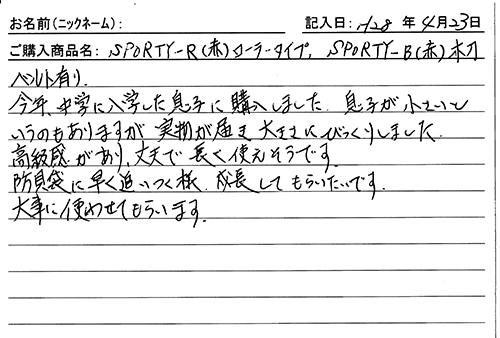 お名前(ニックネーム): 記入日: H28 年 4月 23日
ご購入商品名: SPORTY-R(赤)ローラータイプ, SPORTY-B(赤)木刀
ベルト有り.
今年、中学に入学した息子に購入しました. 息子が小さいと
いうのもありますが 実物が届き 大きさにびっくりしました.
高級感があり、丈夫で長く使えそうです.
防具袋に早く追いつく様、成長してもらいたいです.
大事に使わせてもらいます.